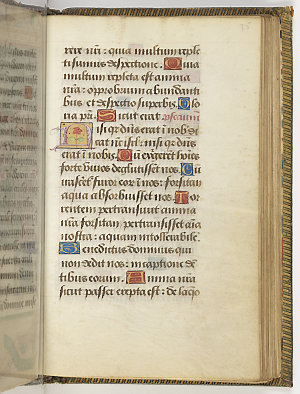 rere nr̄i: quia multum reple
ti sumus despectione. Quia
multum repleta est anima
nr̄a: opprobrium abundanti
bus et despectio superbis. Glo
ria pr̄i. Sicut erat. psalmus
Nisi qr̄ dn̄s erat ī nob̄ di
cat nc̄ isrl̄: nisi qr̄ dn̄s
erat ī nobis. Cū exurgerēt hoīes
forte vivos deglutissēt nos. Cū
irascēr̄ furor eoꝝ ī nos: forsitan
aqua absorbuisset nos. Tor
rentem pertransivit anima
nr̄a forsitan pertransisset aīa
nostra: aquam intollerabilē.
Benedictus dominus qui
non dedit nos: in captione dē
tibus eorum. Anima nr̄a
sicut passer erepta est: de laq̄o